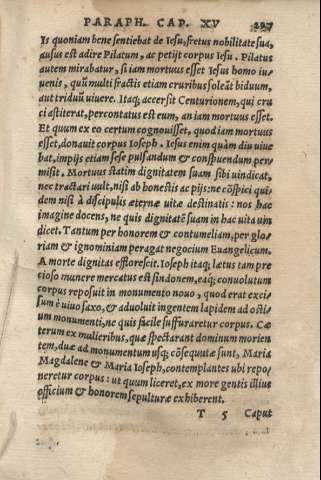 PARAPH. CAP. XV 297
Is quoniam bene sentiebat de Iesu, fretus nobilitate sua,
ausus est adire Pilatum, ac petijt corpus Iesu. Pilatus
autem mirabatur, si iam mortuus esset Iesus homo iu⸗
uenis, quũ multi fractis etiam cruribus soleãt biduum,
aut triduũ uiuere. Itaq; accersit Centurionem, qui cru
ci astiterat, percontatus est eum, an iam mortuus esset.
Et quum ex eo certum cognouisset, quod iam mortuus
esset, donauit corpus Ioseph. Iesus enim quàm diu uiue
bat, impijs etiam sese pulsandum & conspuendum per
misit. Mortuus statim dignitatem suam sibi uindicat,
nec tractari uult, nisi ab honestis ac pijs: ne cõspici qui
dem nisi à discipulis æternæ uitæ destinatis: nos hac
imagine docens, ne quis dignitatẽ suam in hac uita uin
dicet. Tantum per honorem & contumeliam, per glo⸗
riam & ignominiam peragat negocium Euangelicum.
A morte dignitas efflorescit. Ioseph itaq; lætus tam pre
cioso munere mercatus est sindonem, eaq; conuolutum
corpus reposuit in monumento nouo, quod erat exci⸗
sum è uiuo saxo, & aduoluit ingentem lapidem ad osti⸗
um monumenti, ne quis facile suffuraretur corpus. Cæ
terum ex mulieribus, quæ spectarant dominum morien
tem, duæ ad monumentum usq; cõsequutæ sunt, Maria
Magdalene & Maria Ioseph, contemplantes ubi repo⸗
neretur corpus: ut quum liceret, ex more gentis illius
officium & honorem sepulturæ exhiberent.
T 5 Caput